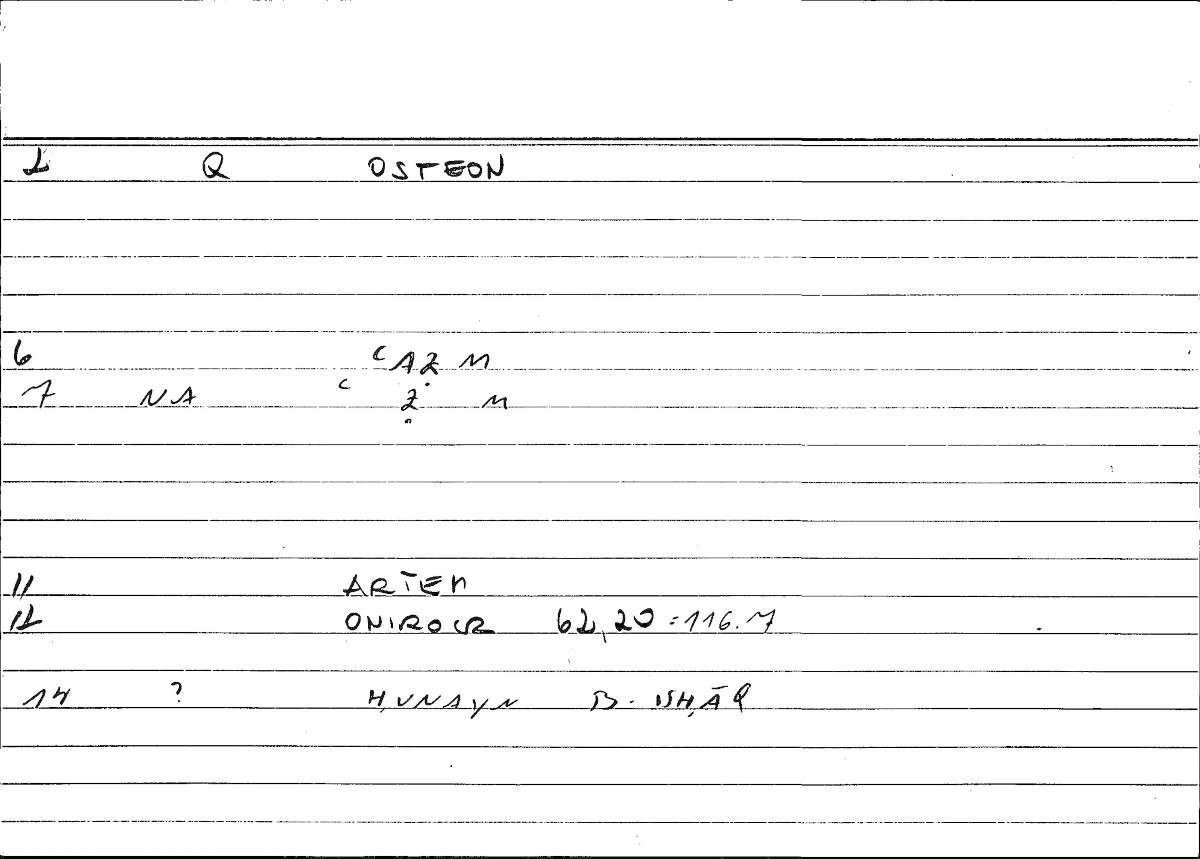 1 Q OSTEON
6 ʿAẒM
7 NA ʿ Ẓ M
11 ARTEM
12 ONIROCR 62,20 = 116.7
14 ? ḤUNAYN B. ISḤĀQ